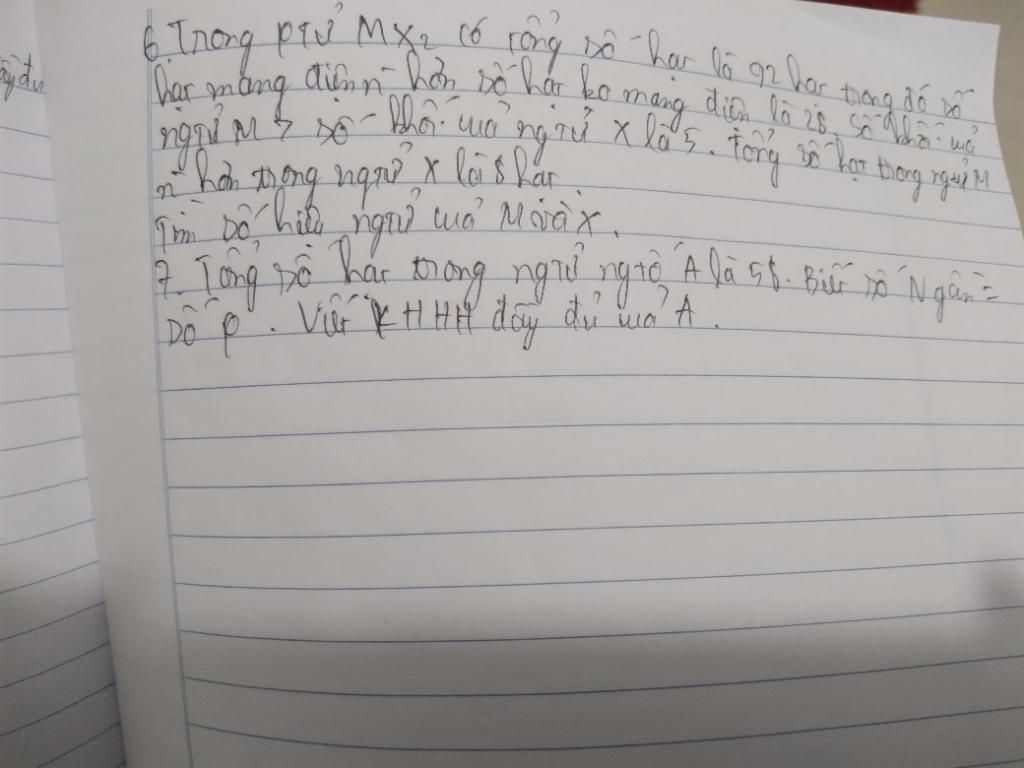 6 Trong ptử MX₂ có tổng số hạt là 92 hạt trong đó số
hạt mang điện n̄ hơn số hạt ko mạng điện là 28. Số khối uả
ngtử M > số khối uả ngtử X là 5. Tổng số hạt trong ngtử M
n̄ hơn trong ngtử X là 8 hạt.
Tìm số hiệu ngtử uả M và X.
7. Tổng số hạt trong ngtử ngtố A là 58. Biết số N gần =
số p. Viết KHHH đầy đủ uả A.